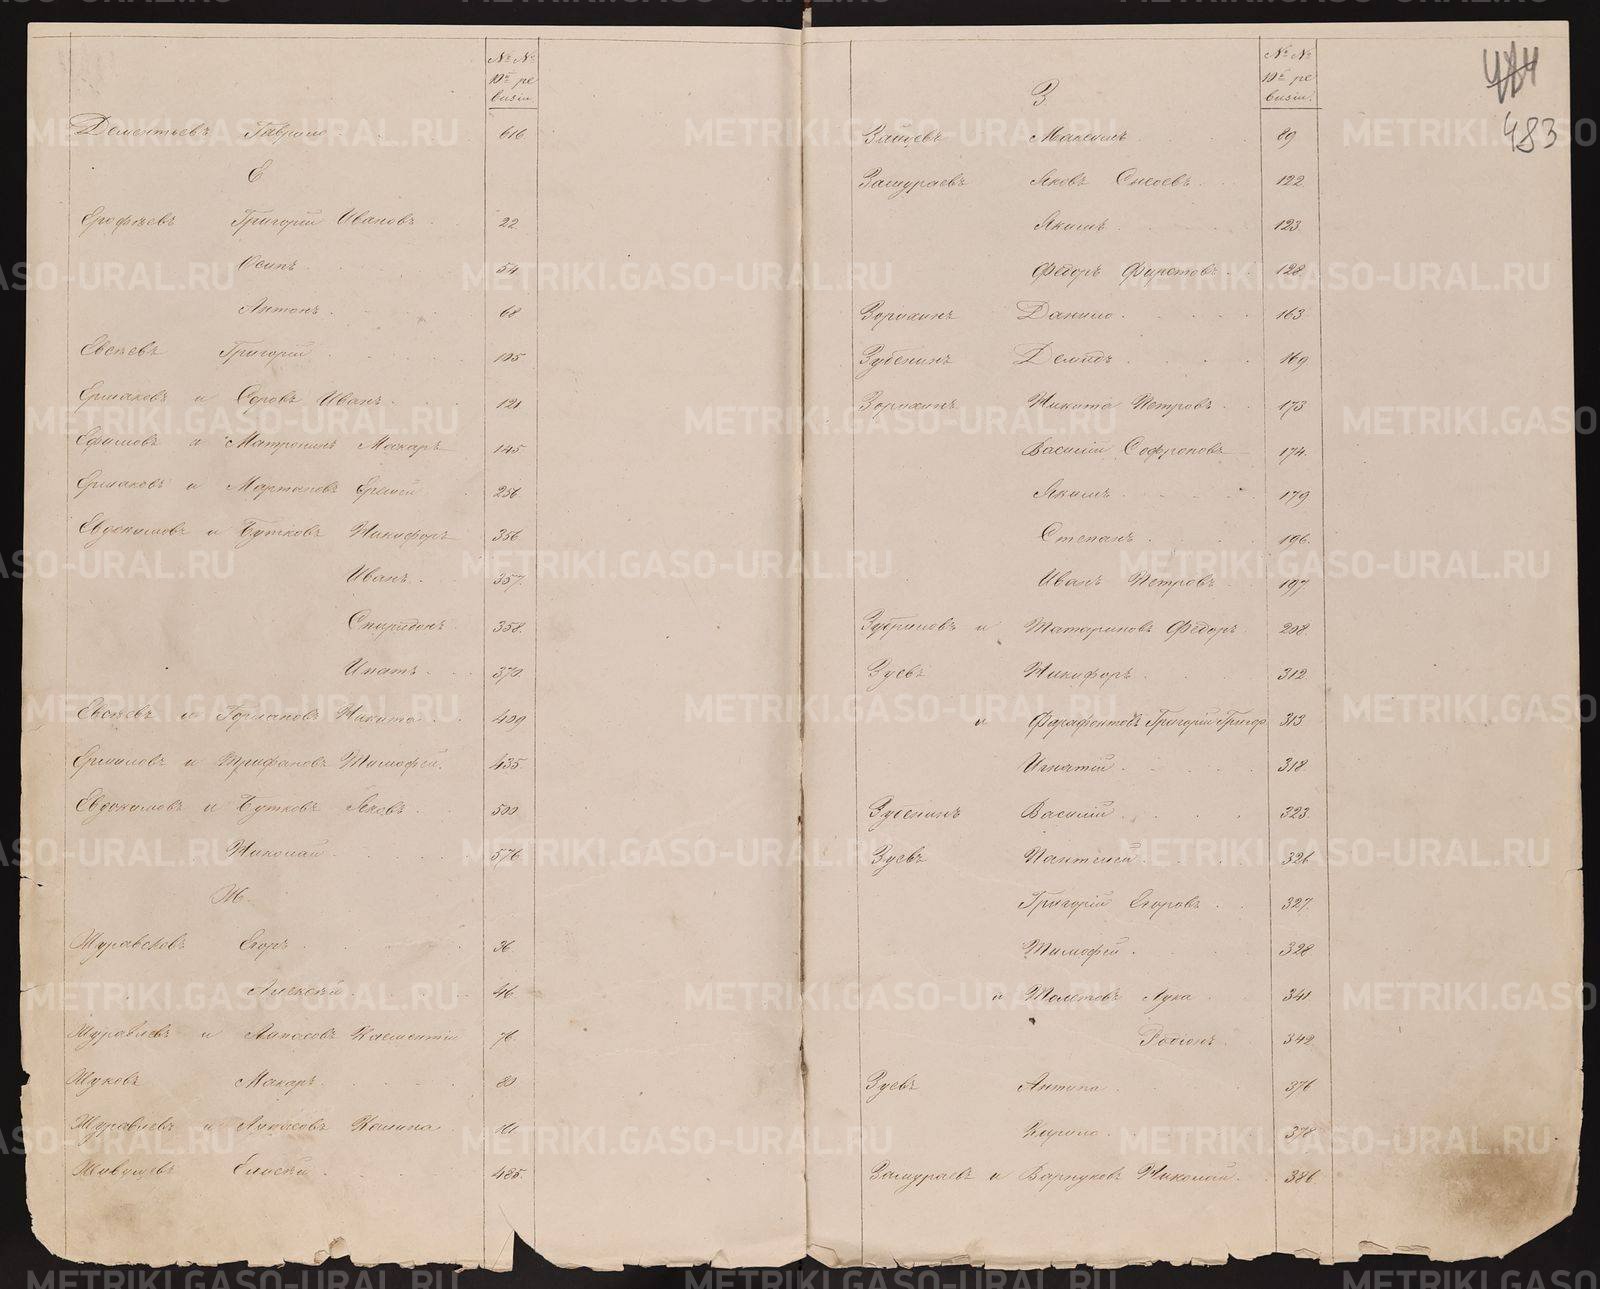 № №
10й ре
визіи
Дементьевъ Гаврило 616
Е
Ерофѣевъ Григорій Ивановъ 22
Осипъ 54
Антонъ 68
Евсѣевъ Григорій 105
Ермаковъ и Серовъ Иванъ 121
Ефимовъ и Матронинъ Макаръ 145
Ермаковъ и Мартановъ Еремѣй 256
Евдокимовъ и Бутковъ Никифоръ 356
Иванъ 357
Спиридонъ 358
Ипатъ 370
Евсѣевъ и Горлановъ Никита 409
Ермиловъ и Трифановъ Тимофей 435
Евдокимовъ и Бутковъ Яковъ 500
Николай 576
Ж
Журавлевъ Егоръ 36
Алексѣй 46
Журавлевъ и 76
Жуковъ Макаръ 80
Журавлевъ и
Елисѣй 485
№ №
10й ре
визіи
З
484
483
Зайцевъ Максимъ 89
Замураевъ Яковъ 122
Якимъ 123
Федоръ 128
Зорихинъ Данило 163
Зубенинъ Демидъ 169
Зорихинъ Никита Петровъ 173
Василій Софроновъ 174
Якимъ 179
Степанъ 196
Иванъ Петровъ 197
Зубриловъ и Татариновъ Федоръ 298
Зуевъ Никифоръ 312
и Фарафонтовъ Григорій Григор 313
Игнатій 318
Зубенинъ Василій 323
Зуевъ Пантелей 326
Григорій Егоровъ 327
Тимофей 328
и Толстовъ Лука 341
Родіонъ 342
Зуевъ Антипа 376
Кирило 378
Замураевъ и Варнуковъ Николай 386
METRIKI.GASO-URAL.RU